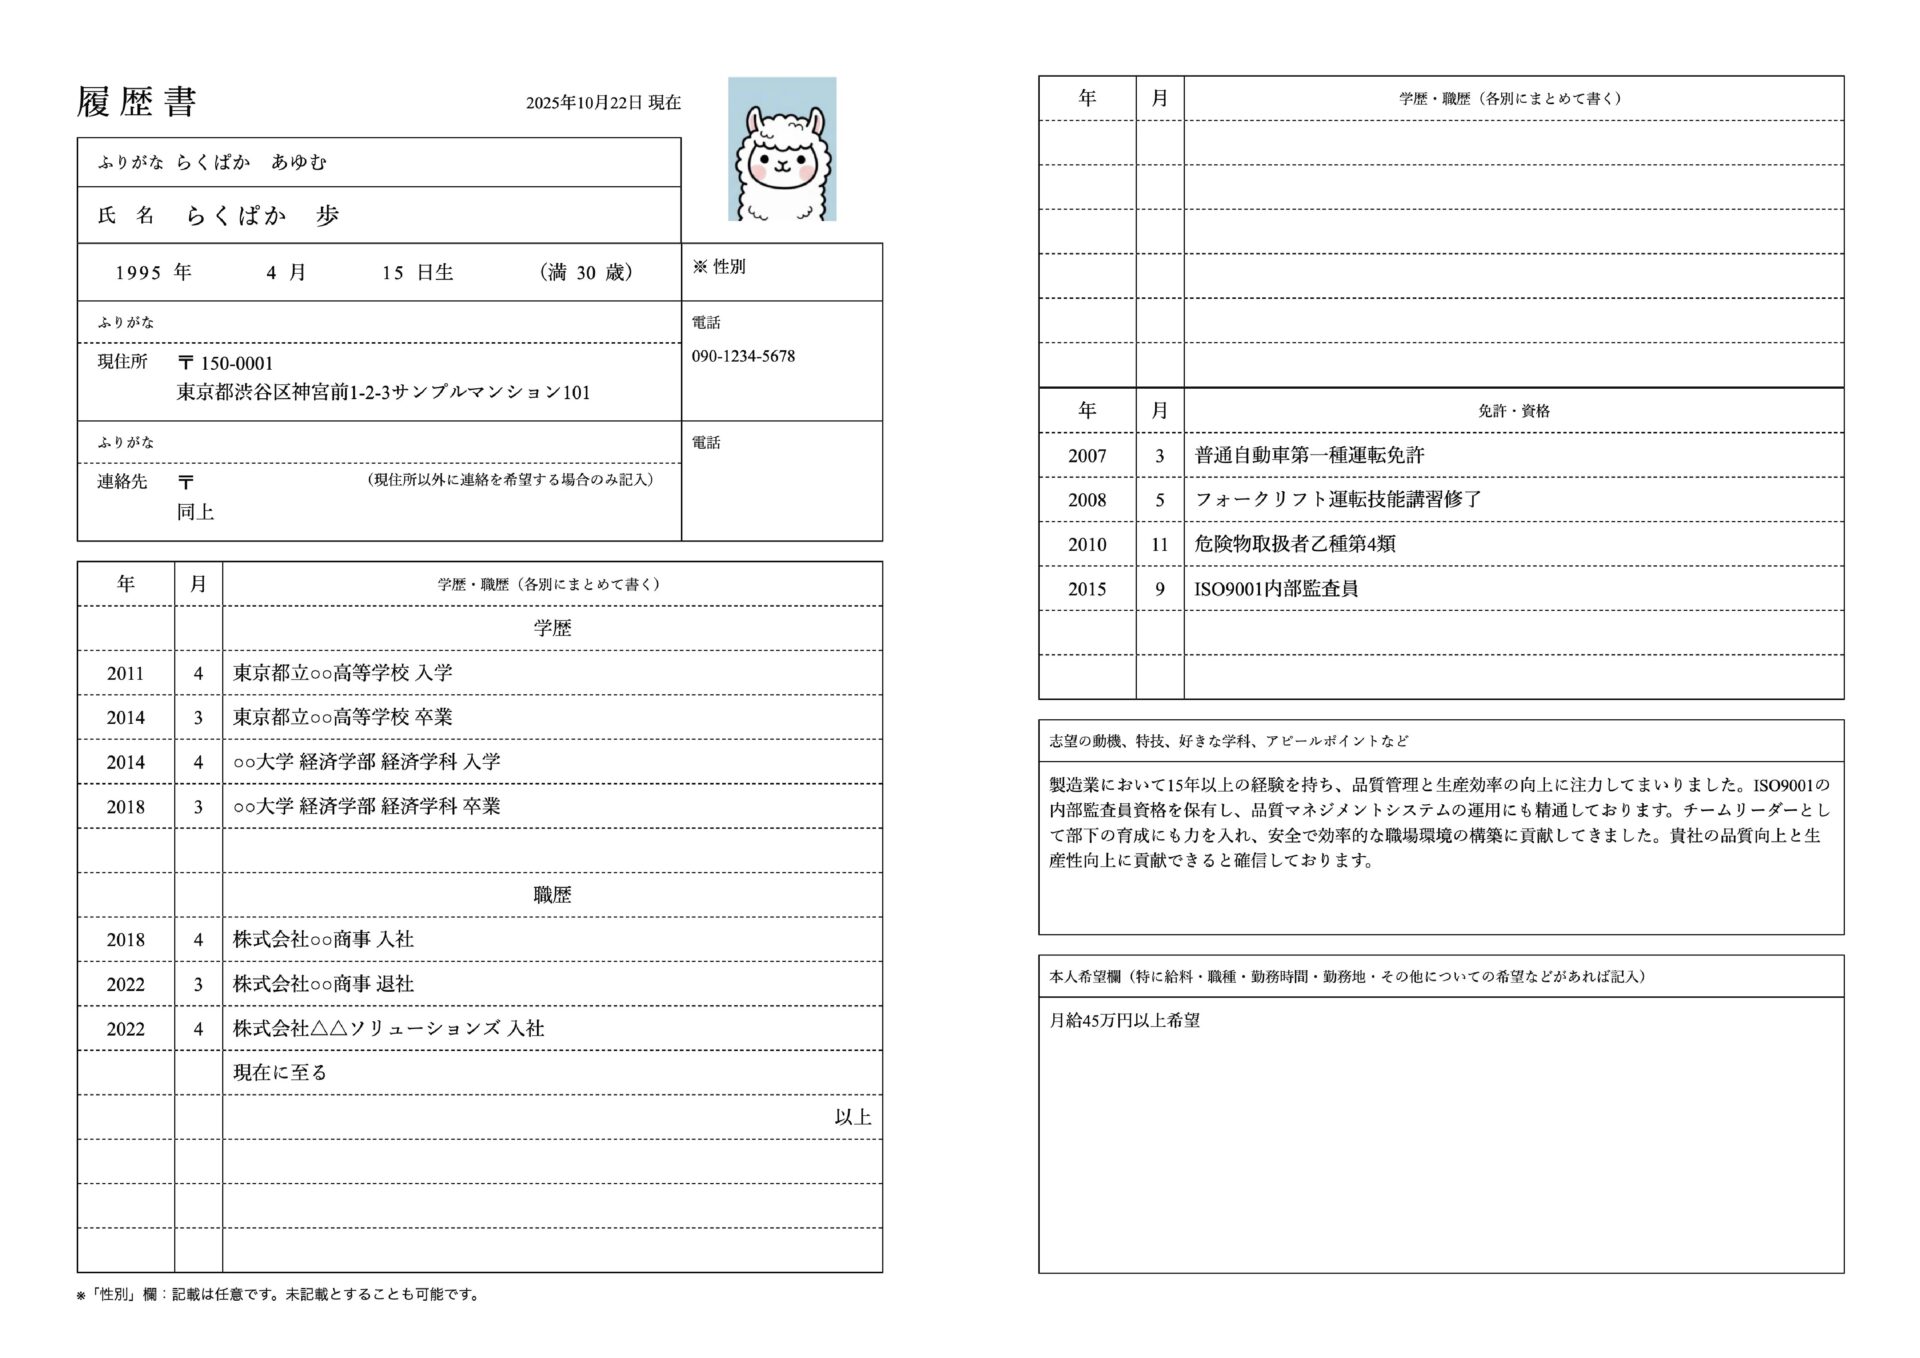 履歴書
2025年10月22日 現在
ふりがな らくぱか　あゆむ
氏　名　らくぱか　歩
1995 年 4 月 15 日生 （満 30 歳）
※ 性別
ふりがな
現住所 〒 150-0001
東京都渋谷区神宮前1-2-3サンプルマンション101
電話
090-1234-5678
ふりがな
連絡先 〒 （現住所以外に連絡を希望する場合のみ記入）
同上
電話
年 月 学歴・職歴（各別にまとめて書く）
学歴
2011 4 東京都立○○高等学校 入学
2014 3 東京都立○○高等学校 卒業
2014 4 ○○大学 経済学部 経済学科 入学
2018 3 ○○大学 経済学部 経済学科 卒業
職歴
2018 4 株式会社○○商事 入社
2022 3 株式会社○○商事 退社
2022 4 株式会社△△ソリューションズ 入社
現在に至る
以上
※「性別」欄：記載は任意です。未記載とすることも可能です。
年 月 学歴・職歴（各別にまとめて書く）
年 月 免許・資格
2007 3 普通自動車第一種運転免許
2008 5 フォークリフト運転技能講習修了
2010 11 危険物取扱者乙種第4類
2015 9 ISO9001内部監査員
志望の動機、特技、好きな学科、アピールポイントなど
製造業において15年以上の経験を持ち、品質管理と生産効率の向上に注力してまいりました。ISO9001の
内部監査員資格を保有し、品質マネジメントシステムの運用にも精通しております。チームリーダーとし
て部下の育成にも力を入れ、安全で効率的な職場環境の構築に貢献してきました。貴社の品質向上と生
産性向上に貢献できると確信しております。
本人希望欄（特に給料・職種・勤務時間・勤務地・その他についての希望などがあれば記入）
月給45万円以上希望